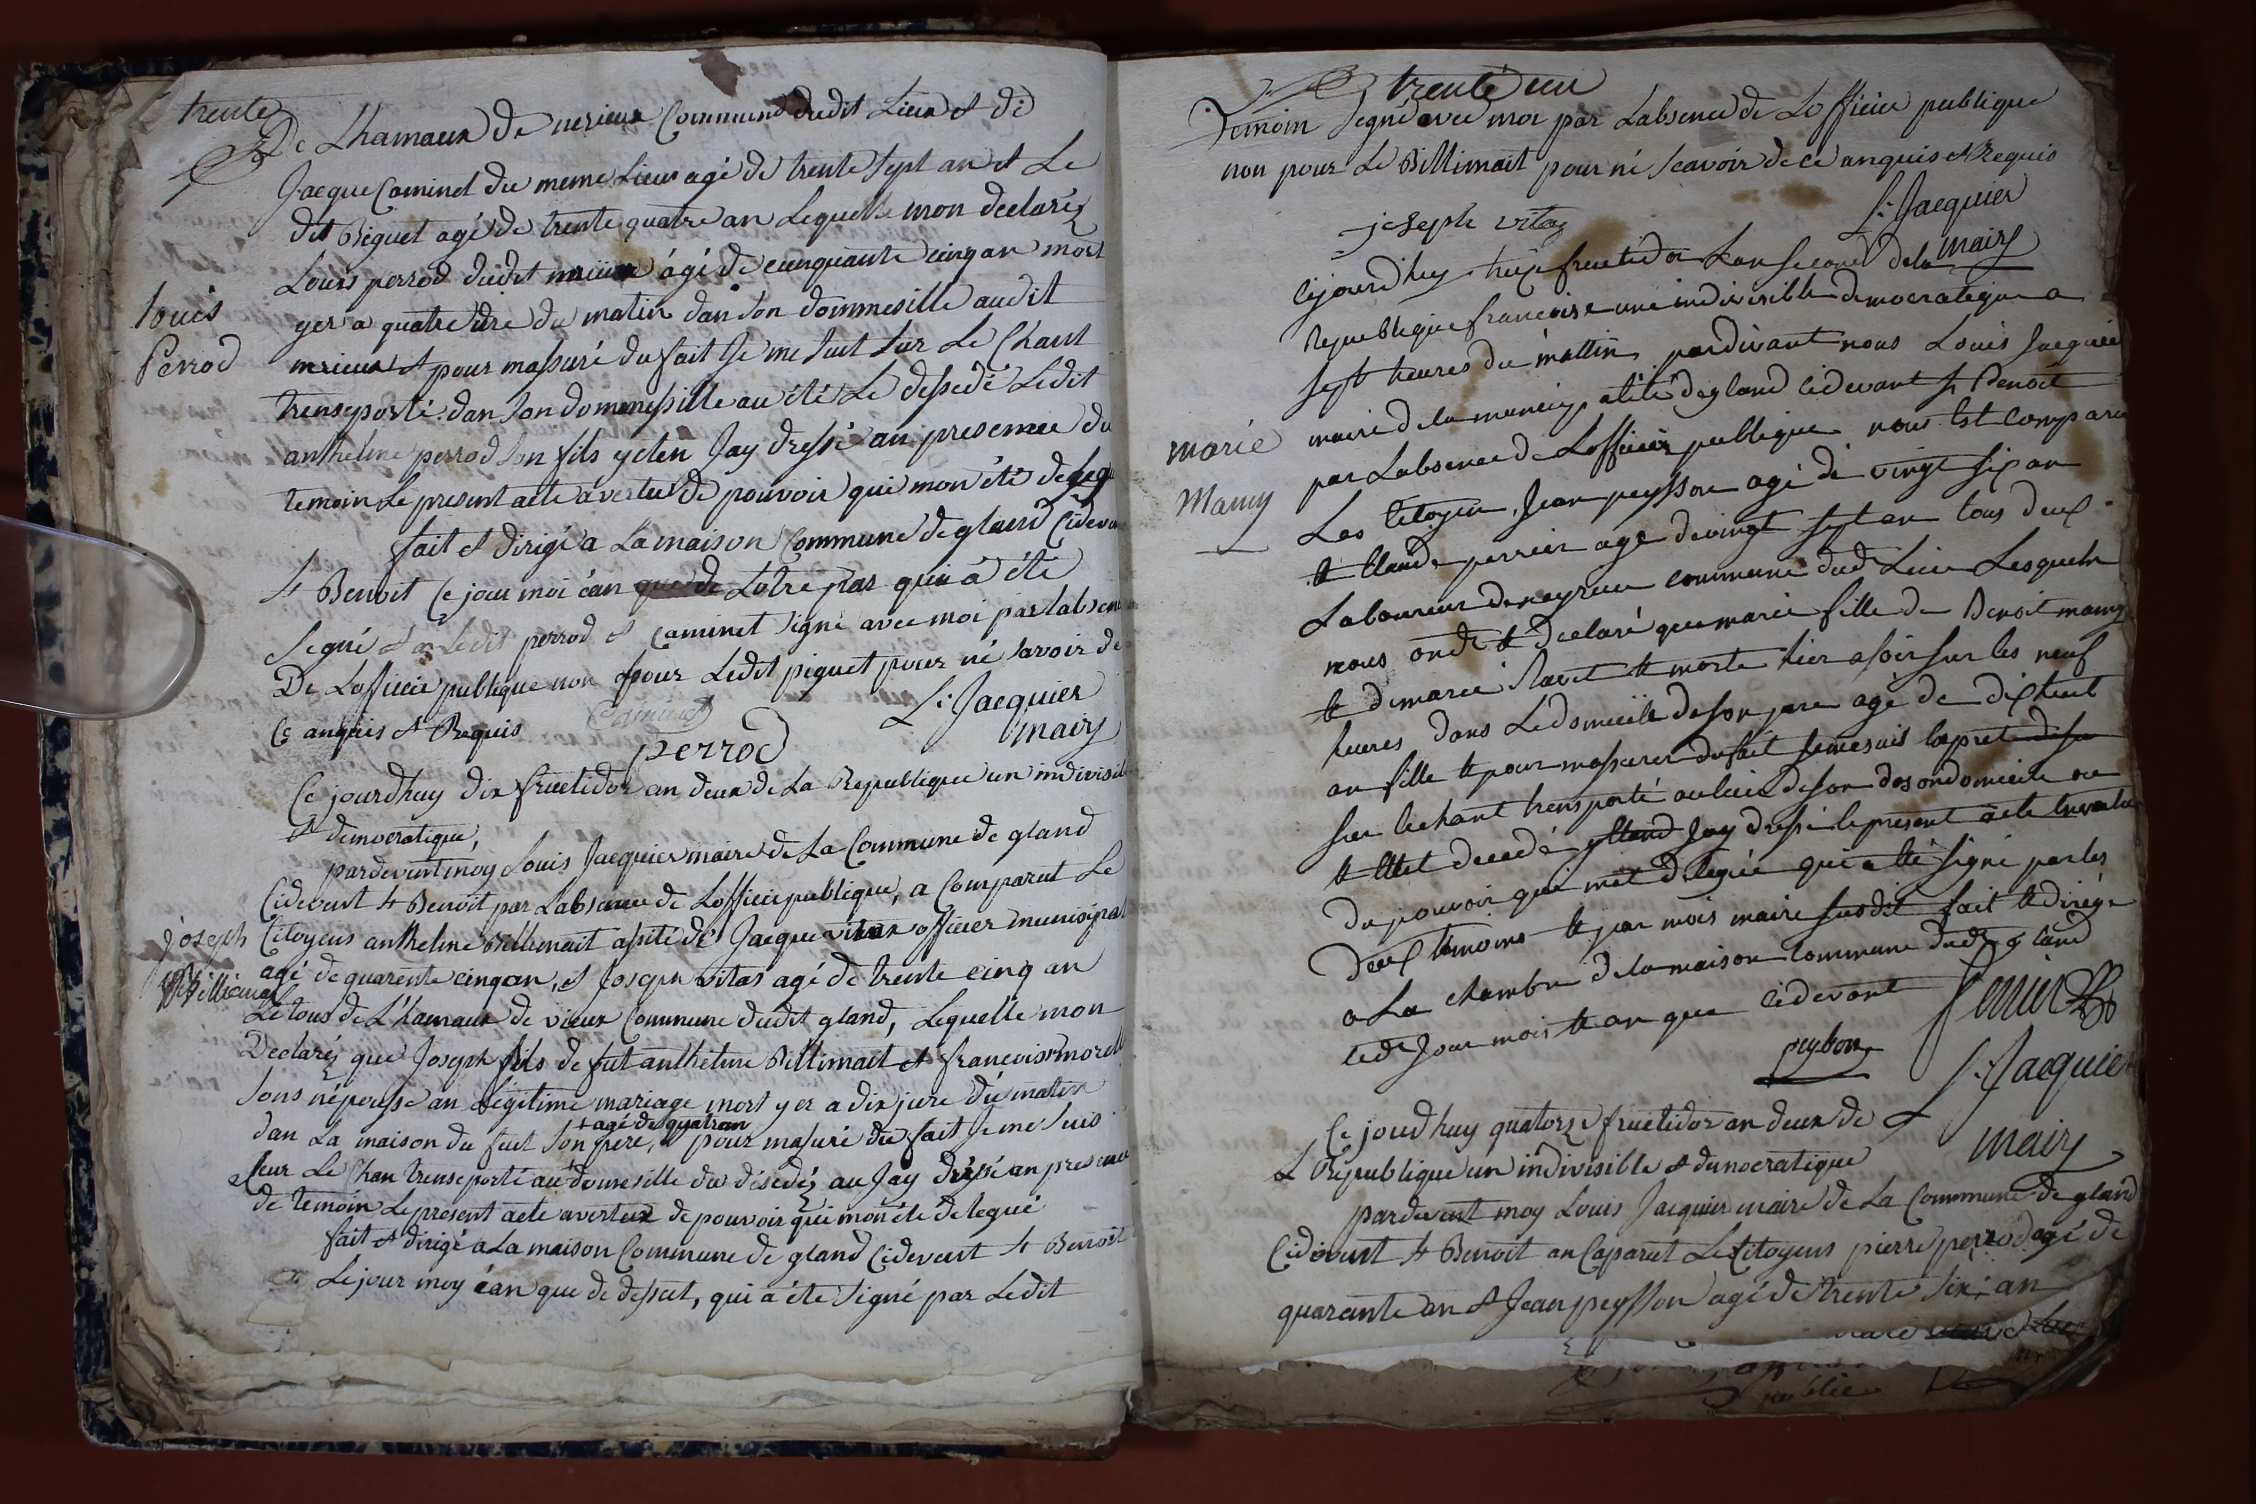 trente
De Lhamaux de nerieux Commune dudit Lieux et di
Jacque Caminet du meme Lieux agé de trente sept an et Le
dit Piguet agé de trente quatre an Lequelle mon declaréz
Louis perrod dudit merieux âgé de cinquante cinq an mort
yer a quatre ure du matin dan son dommesille audit
Louis
Perrod
merieux et pour massuré du fait Je me suit sur Le Chant
trensporté dan son domenesille au été Le dessedé Ledit
anthelme perrod son fils yclen Jay dressé an presence du
temoin Le present acte a verteu de pouvoir qui mon été delegu
fait et dirigé a La maison Commune de gland Cideva
St Benoit Ce jour moi éan que de Lotre par quin a été
Segné et a Ledit perrod et Caminet signé avec moi par labsen
De Loffisie publique non pour Ledit piguet pour né savoir de
Ce anquis et Requis
Caminet
perrod
L. Jacquier
mairy
Ce jourdhuy dix fructidor an deux de La Republique un indivisib
et democratique,
pardevent moy Louis Jacquier maire de La Commune de gland
Cidevent St Benoit par Labsence de Loffisie publique, a Comparut Le
joseph
Billiemat
Citoyens anthelme Billimait asité de Jacque vitas officier municipal
agé de quarente cinq an, et Joseph vitas agé de trente cinq an
Le tous de L'hamaux de vieux Commune dudit gland, Lequelle mon
Declaréz que Joseph fils de fut anthelme Billimait et francoise morell
sons népousse an Légitime mariage mort yer a dix jure du maten
+ agé de quatr an
dan La maison du fut son pere, + pour masuré du fait Je me suis
sur Le Chan trensporté au domesille du désedéz au Jay dréssé an presence
de temoin Le present acte averteux de pouvoir qui mon éte delegué
fait et dirigé a La maison Commune de gland Cidevent St Benoit
Le jour moy éan que de dessut, qui a éte signé par Ledit
trente un
Temoin Segné avec moi par Labsence de Loffisier publique
non pour Le Billimait pour né scavoir de ce anquis et Requis
joseph vitaz
L. Jacquier
mairy
Cejourdhuy treize fructidor Lan second de la
Republique francoise une indivisible democratique a
sept heures du mattin pardivant nous Louis Jacquier
maire de la municipalité de gland cidevant St Benoit
marie
Mamy
par Labsence de Loffisier publique nous Est comparu
Les Citoyen Jean peysson agé de vingt six an
& Claude perrier age de vingt sept an tous deux
Laboureur de neyrieu commune dud Lieu Lesquelx
nous ondt & declaré que marie fille de Benoit mamy
& de marie Ravet & morte hier a soir sur les neuf
heures dans Le domicile de son pere agé de dix huit
an fille & pour massurer du fait Je me suis Exprèt
sur lechant transporté au lieu de son dos ondomicile ou
& Etet decedé Jay dressé le present acte En vertu
du pouvoir qui met delegué qui a Eté signé par les
deux temoins & par mois maire susdit fait & dirigé
a La chambre de la maison commune dud gland
led Jour mois & an que cidevant
perrier
peyson
L. Jacquier
mairy
Ce jourdhuy quatorze fructidor an deux de
L Republique un indivisible et democratique
pardevent moy Louis Jacquier maire de La Commune de gland
Cidevent St Benoit an Caparut Le Citoyens pierre perrod agé de
quarante an et Jean peysson agé de trente six an
publie